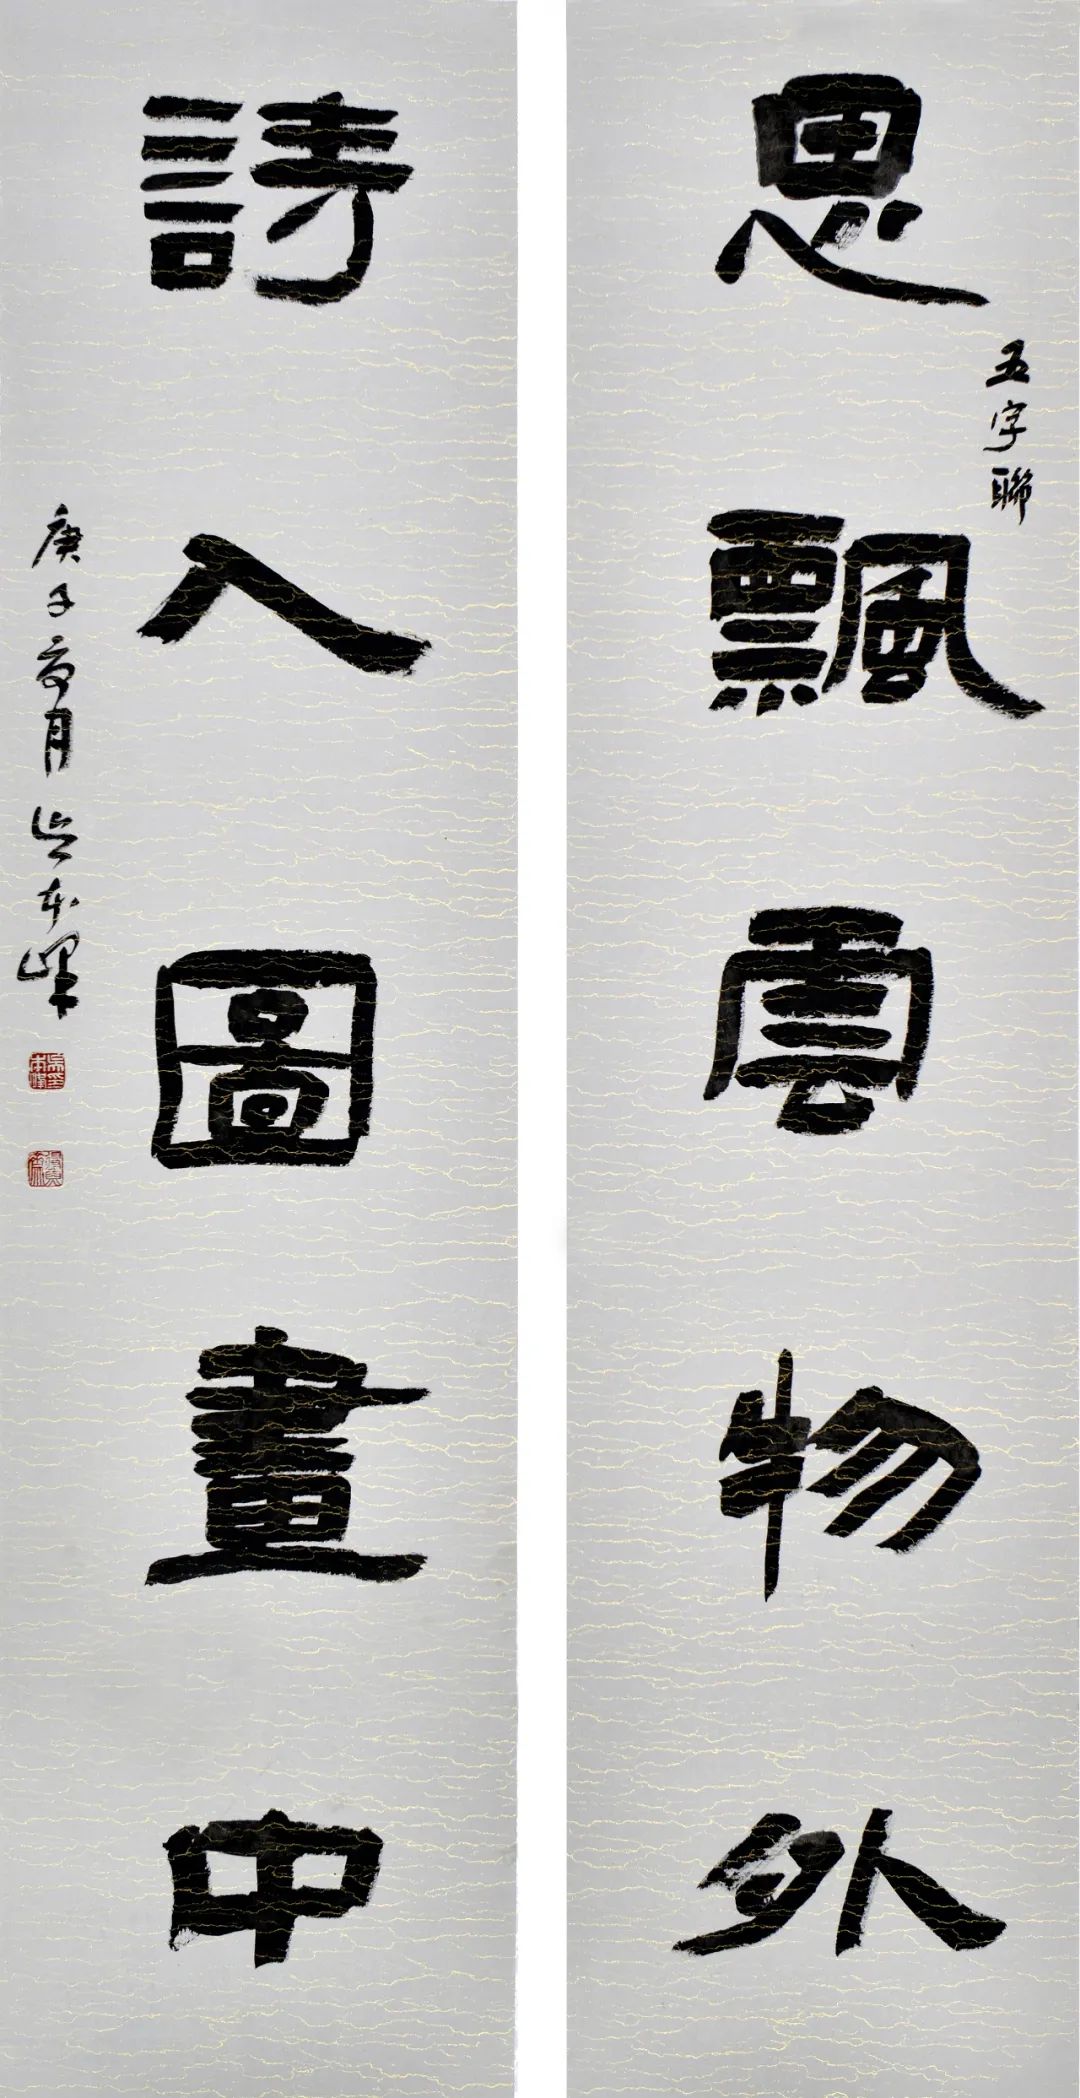 思飄雲物外
五字聯
詩入圖畫中
庚子夏月吳本峰